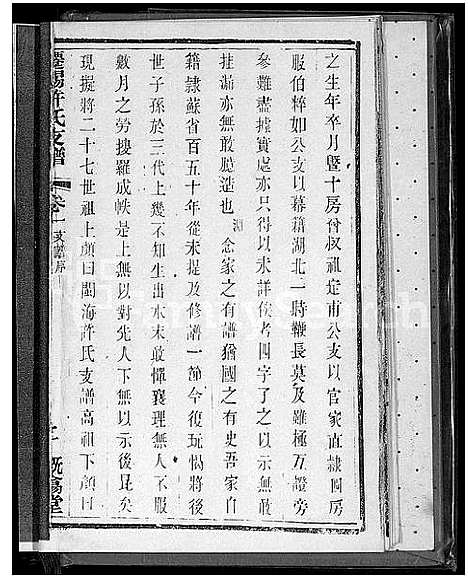 之生年卒月暨十房胥叔祖定甫公支以官家直隸四房
服伯粹如公支以幕籍湖北一時鞭長莫及雖極互證旁
參難盡據實處亦只得以未詳俟考四字了之以示無敢
挂漏亦無敢臆造也 念家之有譜猶國之有史吾家自
籍隸蘇省百五十年從未提及修譜一節今復玩愒將後
世子孫於三代上幾不知生出水木敢憚襄理無人不服
數月之勞搜羅成帙是上無以對先人下無以示後昆矣
現擬將二十七世祖上顏曰閩海許氏支譜高祖下顏曰
遷錫許氏支譜 卷一 支譜序
FamilySearch